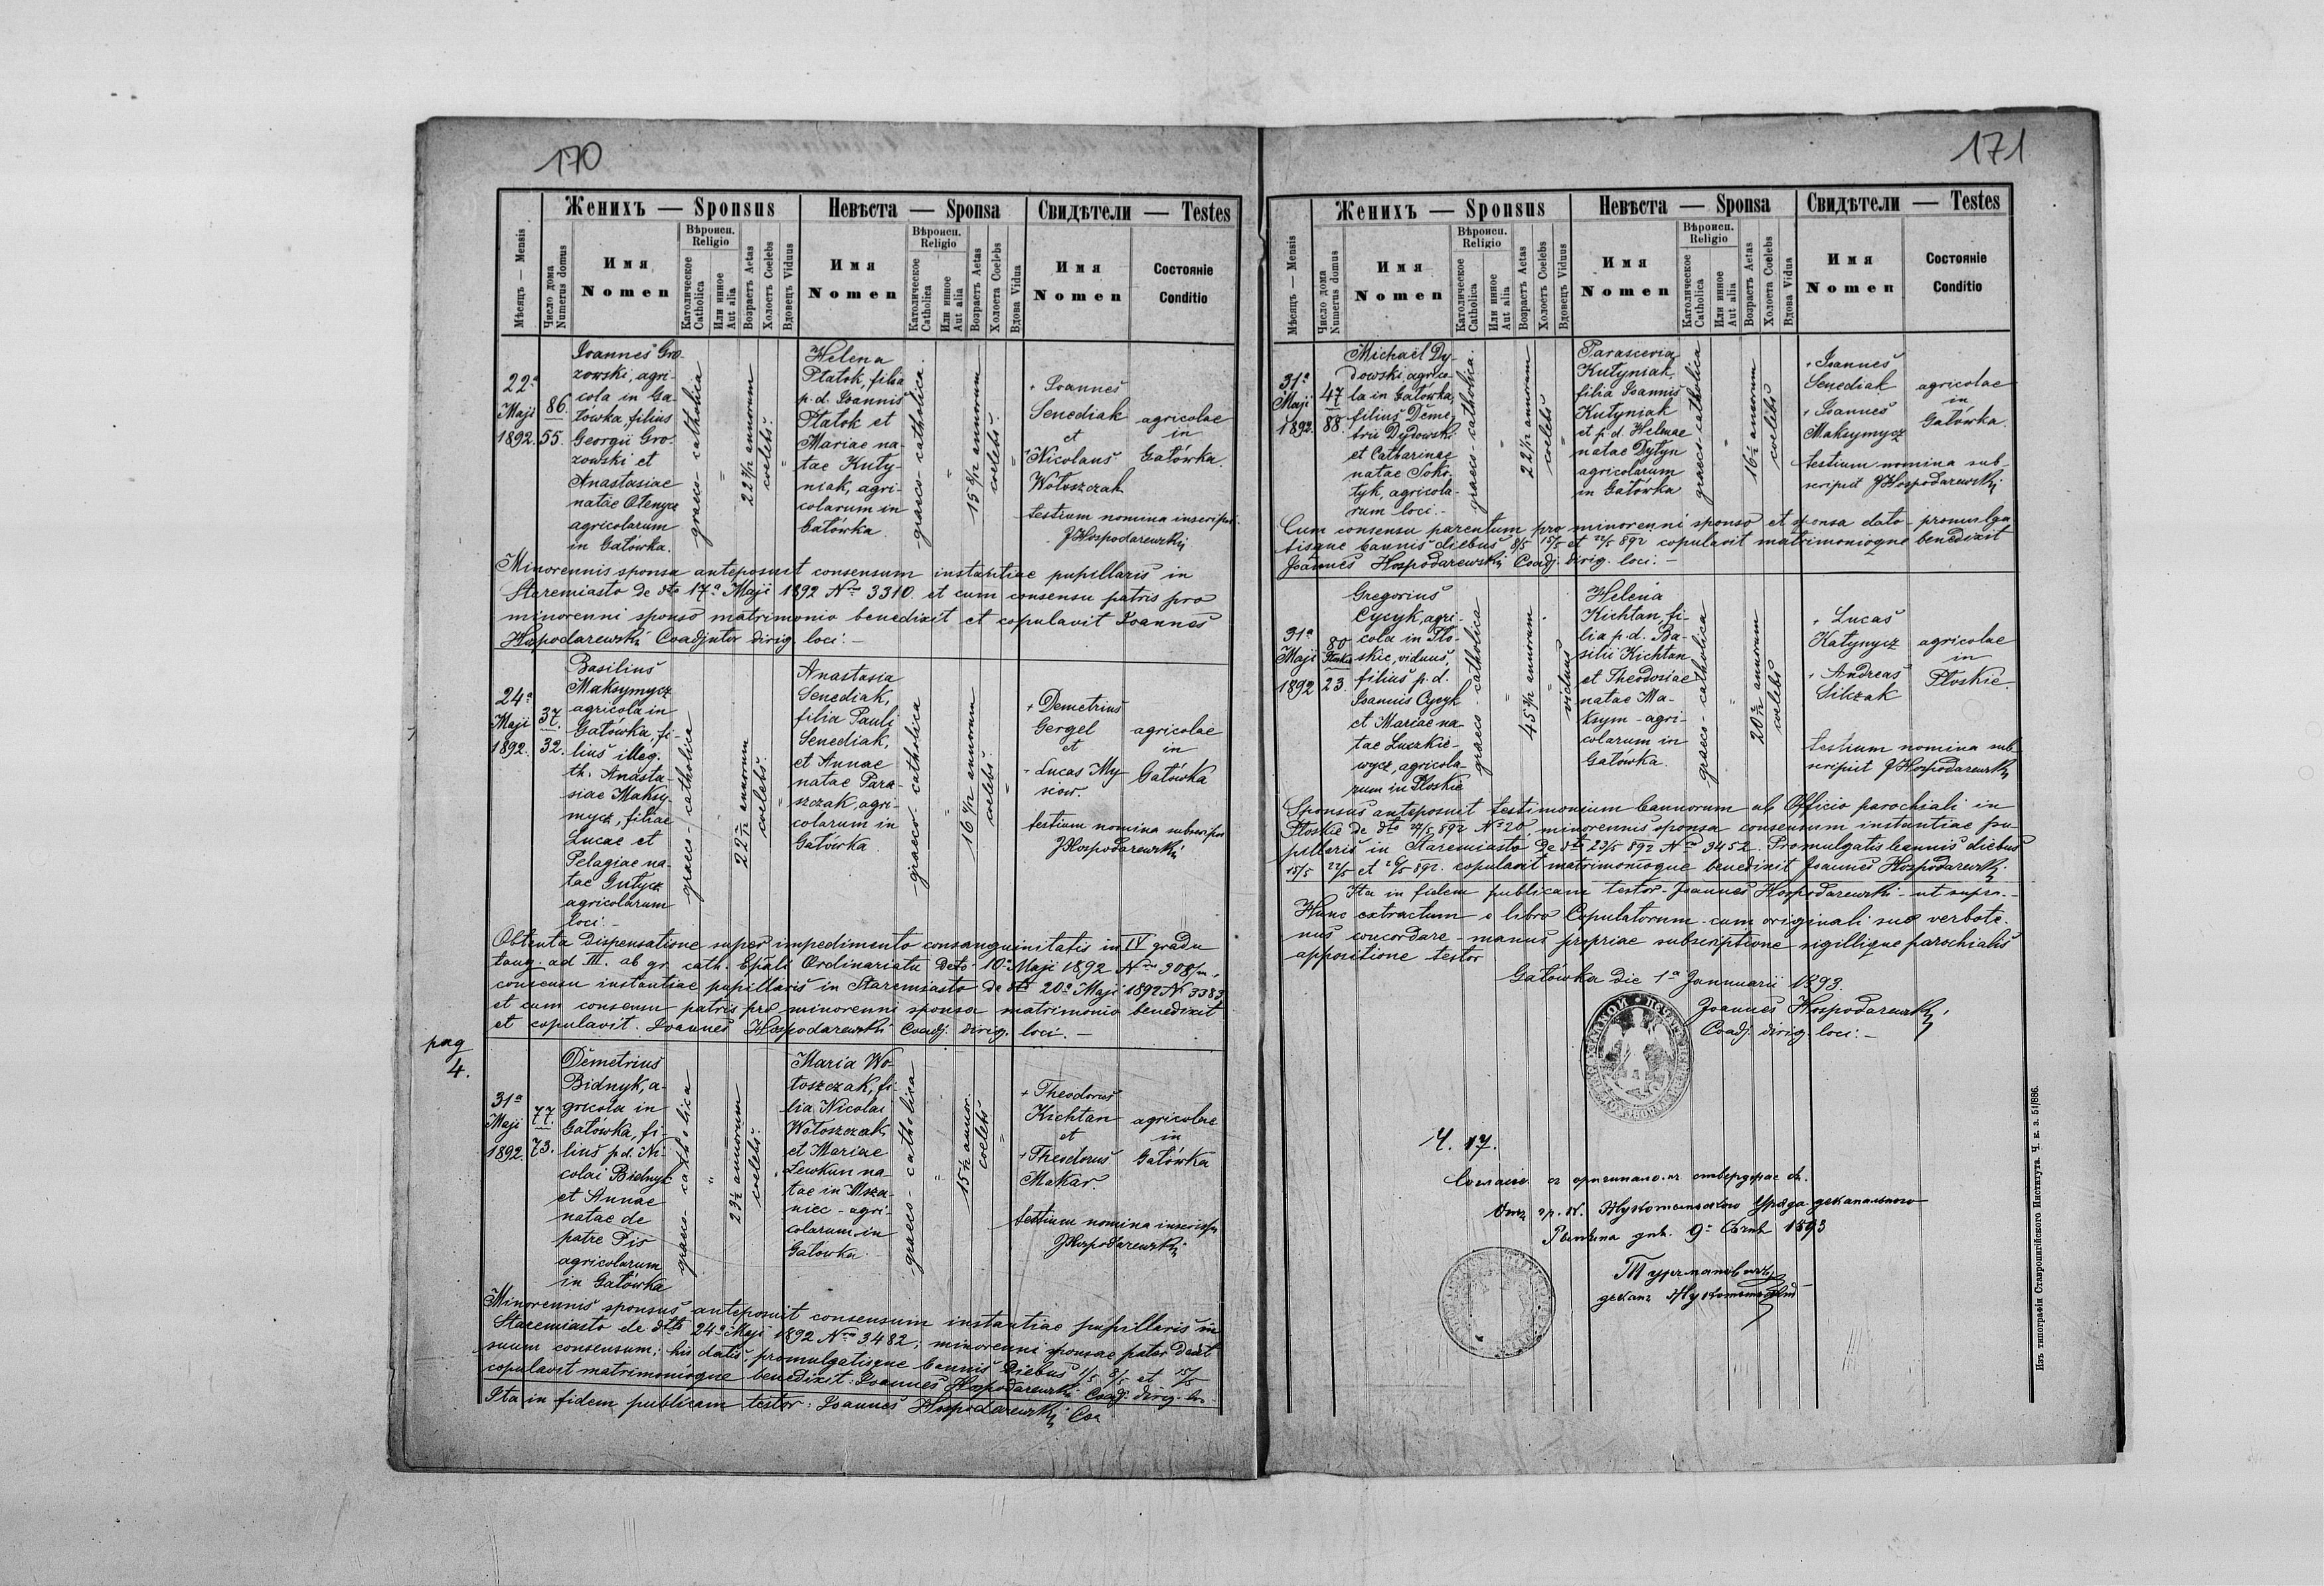 170
Женихъ — Sponsus
Невѣста — Sponsa
Свидѣтели — Testes
Мѣсяцъ — Mensis
Число дома
Numerus domus
Имя
Nomen
Вѣроисп.
Religio
Католическое
Catholica
Или инное
Aut alia
Возрастъ Aetas
Холостъ Coelebs
Вдовецъ Viduus
Имя
Nomen
Вѣроисп.
Religio
Католическое
Catholica
Или инное
Aut alia
Возрастъ Aetas
Холоста Coelebs
Вдова Vidua
Имя
Nomen
Состояніе
Conditio
22ª
Maji
1892.
86.
55.
Joannes Gro-
zowski, agri-
cola in Ga-
łówka, filius
Georgii Gro-
zowski et
Anastasiae
natae Olenycz
agricolarum
in Gałówka.
graeco-catholica
coelebs.
Helena
Ptatok, filia
p. d. Joannis
Ptatok et
Mariae na-
tae Kuty-
niak, agri-
colarum in
Gałówka
graeco-catholica.
coelebs.
+ Joannes
Senediak
et
+ Nicolaus
Wołoszczak
agricolae
in
Gałówka
testium nomina inscripsi
JHospodarewskij
Minorennis sponsa anteposuit consensum instantiae pupillaris in
Staremiasto de dto 17ª Maji 1892 Nro 3310. et cum consensu patris pro
minorenni sponso matrimonio benedixit et copulavit Joannes
Hospodarewskij Coadjutor dirig. loci. —
24ª
Maji
1892.
37.
32.
Basilius
Maksymycz
agricola in
Gałówka, fi-
lius illeg.
th. Anasta-
siae Maksy-
mycz, filiae
Lucae et
Pelagiae na-
tae Gutycz
agricolarum
loci. —
graeco-catholica
coelebs.
Anastasia
Senediak,
filia Pauli
Senediak,
et Annae
natae Para-
szczak, agri-
colarum in
Gałówka
graeco-catholica
coelebs.
+ Demetrius
Gergel
et
+ Lucas My-
siow
agricolae
in
Gałówka
testium nomina subscripsi
JHospodarewskij
Obtenta dispensatione super impedimento consanguinitatis in IV gradu
tang. ad III. ab gr. cath. Epali Ordinariatu
consensu instantiae pupillaris in Staremiasto de dto 20ª Maji 1892 N 3383
et cum consensu patris pro minorenni sponsa matrimonio benedixit
et copulavit. Joannes Hospodarewskij Coadj. dirig. loci. —
pag
4.
31ª
Maji
1892.
77.
73.
Demetrius
Bidnyk, a-
gricola in
Gałówka, fi-
lius p. d. Ni-
colai Bidnyk
et Annae
natae de
patre Pis
agricolarum
in Gałówka
graeco-catholica
23½ annorum
coelebs.
Maria Wo-
łoszczak, fi-
lia Nicolai
Wołoszczak
et Mariae
Lewkun na-
tae in Msza-
niec - agri-
colarum in
Gałówka
graeco-catholica
coelebs
+ Theodorus
Kichtan
et
+ Theodorus
Makar.
agricolae
in
Gałówka
testium nomina inscripsi
JHospodarewskij
Minorennis sponsus anteposuit consensum instantiae pupillaris in
Staremiasto de dto 24ª Maji 1892 Nro 3482; minorenni sponsae pater dedit
suum consensum; his datis, promulgatisque bannis diebus 1/5 8/5 et 15/5
copulavit matrimonioque benedixit: Joannes Hospodarewskij Coadj. dirig. loci.
Ita in fidem publicam testor: Joannes Hospodarewskij Coa
171
Женихъ — Sponsus
Невѣста — Sponsa
Свидѣтели — Testes
Мѣсяцъ — Mensis
Число дома
Numerus domus
Имя
Nomen
Вѣроисп.
Religio
Католическое
Catholica
Или инное
Aut alia
Возрастъ Aetas
Холостъ Coelebs
Вдовецъ Viduus
Имя
Nomen
Вѣроисп.
Religio
Католическое
Catholica
Или инное
Aut alia
Возрастъ Aetas
Холоста Coelebs
Вдова Vidua
Имя
Nomen
Состояніе
Conditio
31ª
Maji
1892.
47
88.
Michaël Dy-
dowski, agrico-
la in Gałówka,
filius Deme-
trii Dydowski
et Catharinae
natae Soko-
tyk, agricola-
rum loci. —
graeco-catholica.
coelebs
Parascevia
Kutyniak,
filia Joannis
Kutyniak
et p. d. Helenae
natae Dytyn
agricolarum
in Gałówka
graeco-catholica
16½ annorum
coelebs
+ Joannes
Senediak
+ Joannes
Maksymycz
agricolae
in
Gałówka.
testium nomina sub-
scripsit JHospodarewskij
Cum consensu parentum pro minorenni sponso et sponsa dato - promulga-
tisque bannis diebus 8/5 15/5 et 22/5 892 copulavit matrimonioque benedixit
Joannes Hospodarewskij Coadj. dirig. loci. —
31ª
Maji
1892
80
23.
Gregorius
Cycyk, agri-
cola in Pło-
skie, viduus,
filius p. d.
Joannis Cycyk
et Mariae na-
tae Luczkie-
wycz, agricola-
rum in Płoskie
graeco-catholica
viduus
Helena
Kichtan, fi-
lia p. d. Ba-
silii Kichtan
et Theodosiae
natae Ma-
ksym - agri-
colarum in
Gałówka.
graeco-catholica
coelebs
+ Lucas
Katynycz
+ Andreas
Silczak
agricolae
in
Płoskie.
testium nomina sub-
scripsit JHospodarewskij
Sponsus anteposuit testimonium bannorum ab Officio parochiali in
Płoskie de dto 27/5 892 No 20, minorennis sponsa consensum instantiae pu-
pillaris in Staremiasto de dto 23/5 892 Nro 3452. Promulgatis bannis diebus
15/5 22/5 et 26/5 892. copulavit matrimonioque benedixit Joannes Hospodarewskij
Ita in fidem publicam testor - Joannes Hospodarewskij - ut supra. -
Hunc extractum e libro Copulatorum cum originali suo verbote-
nus concordare - manus propriae subscriptione sigillique parochialis
appositione testor
Gałówka die 1ª Januarii 1893.
Joannes Hospodarewskij
Coadj. dirig. loci. —
Ч. 17.
1893
Изъ типографіи Ставропигійского Института. Ч. к. з. 51/886.